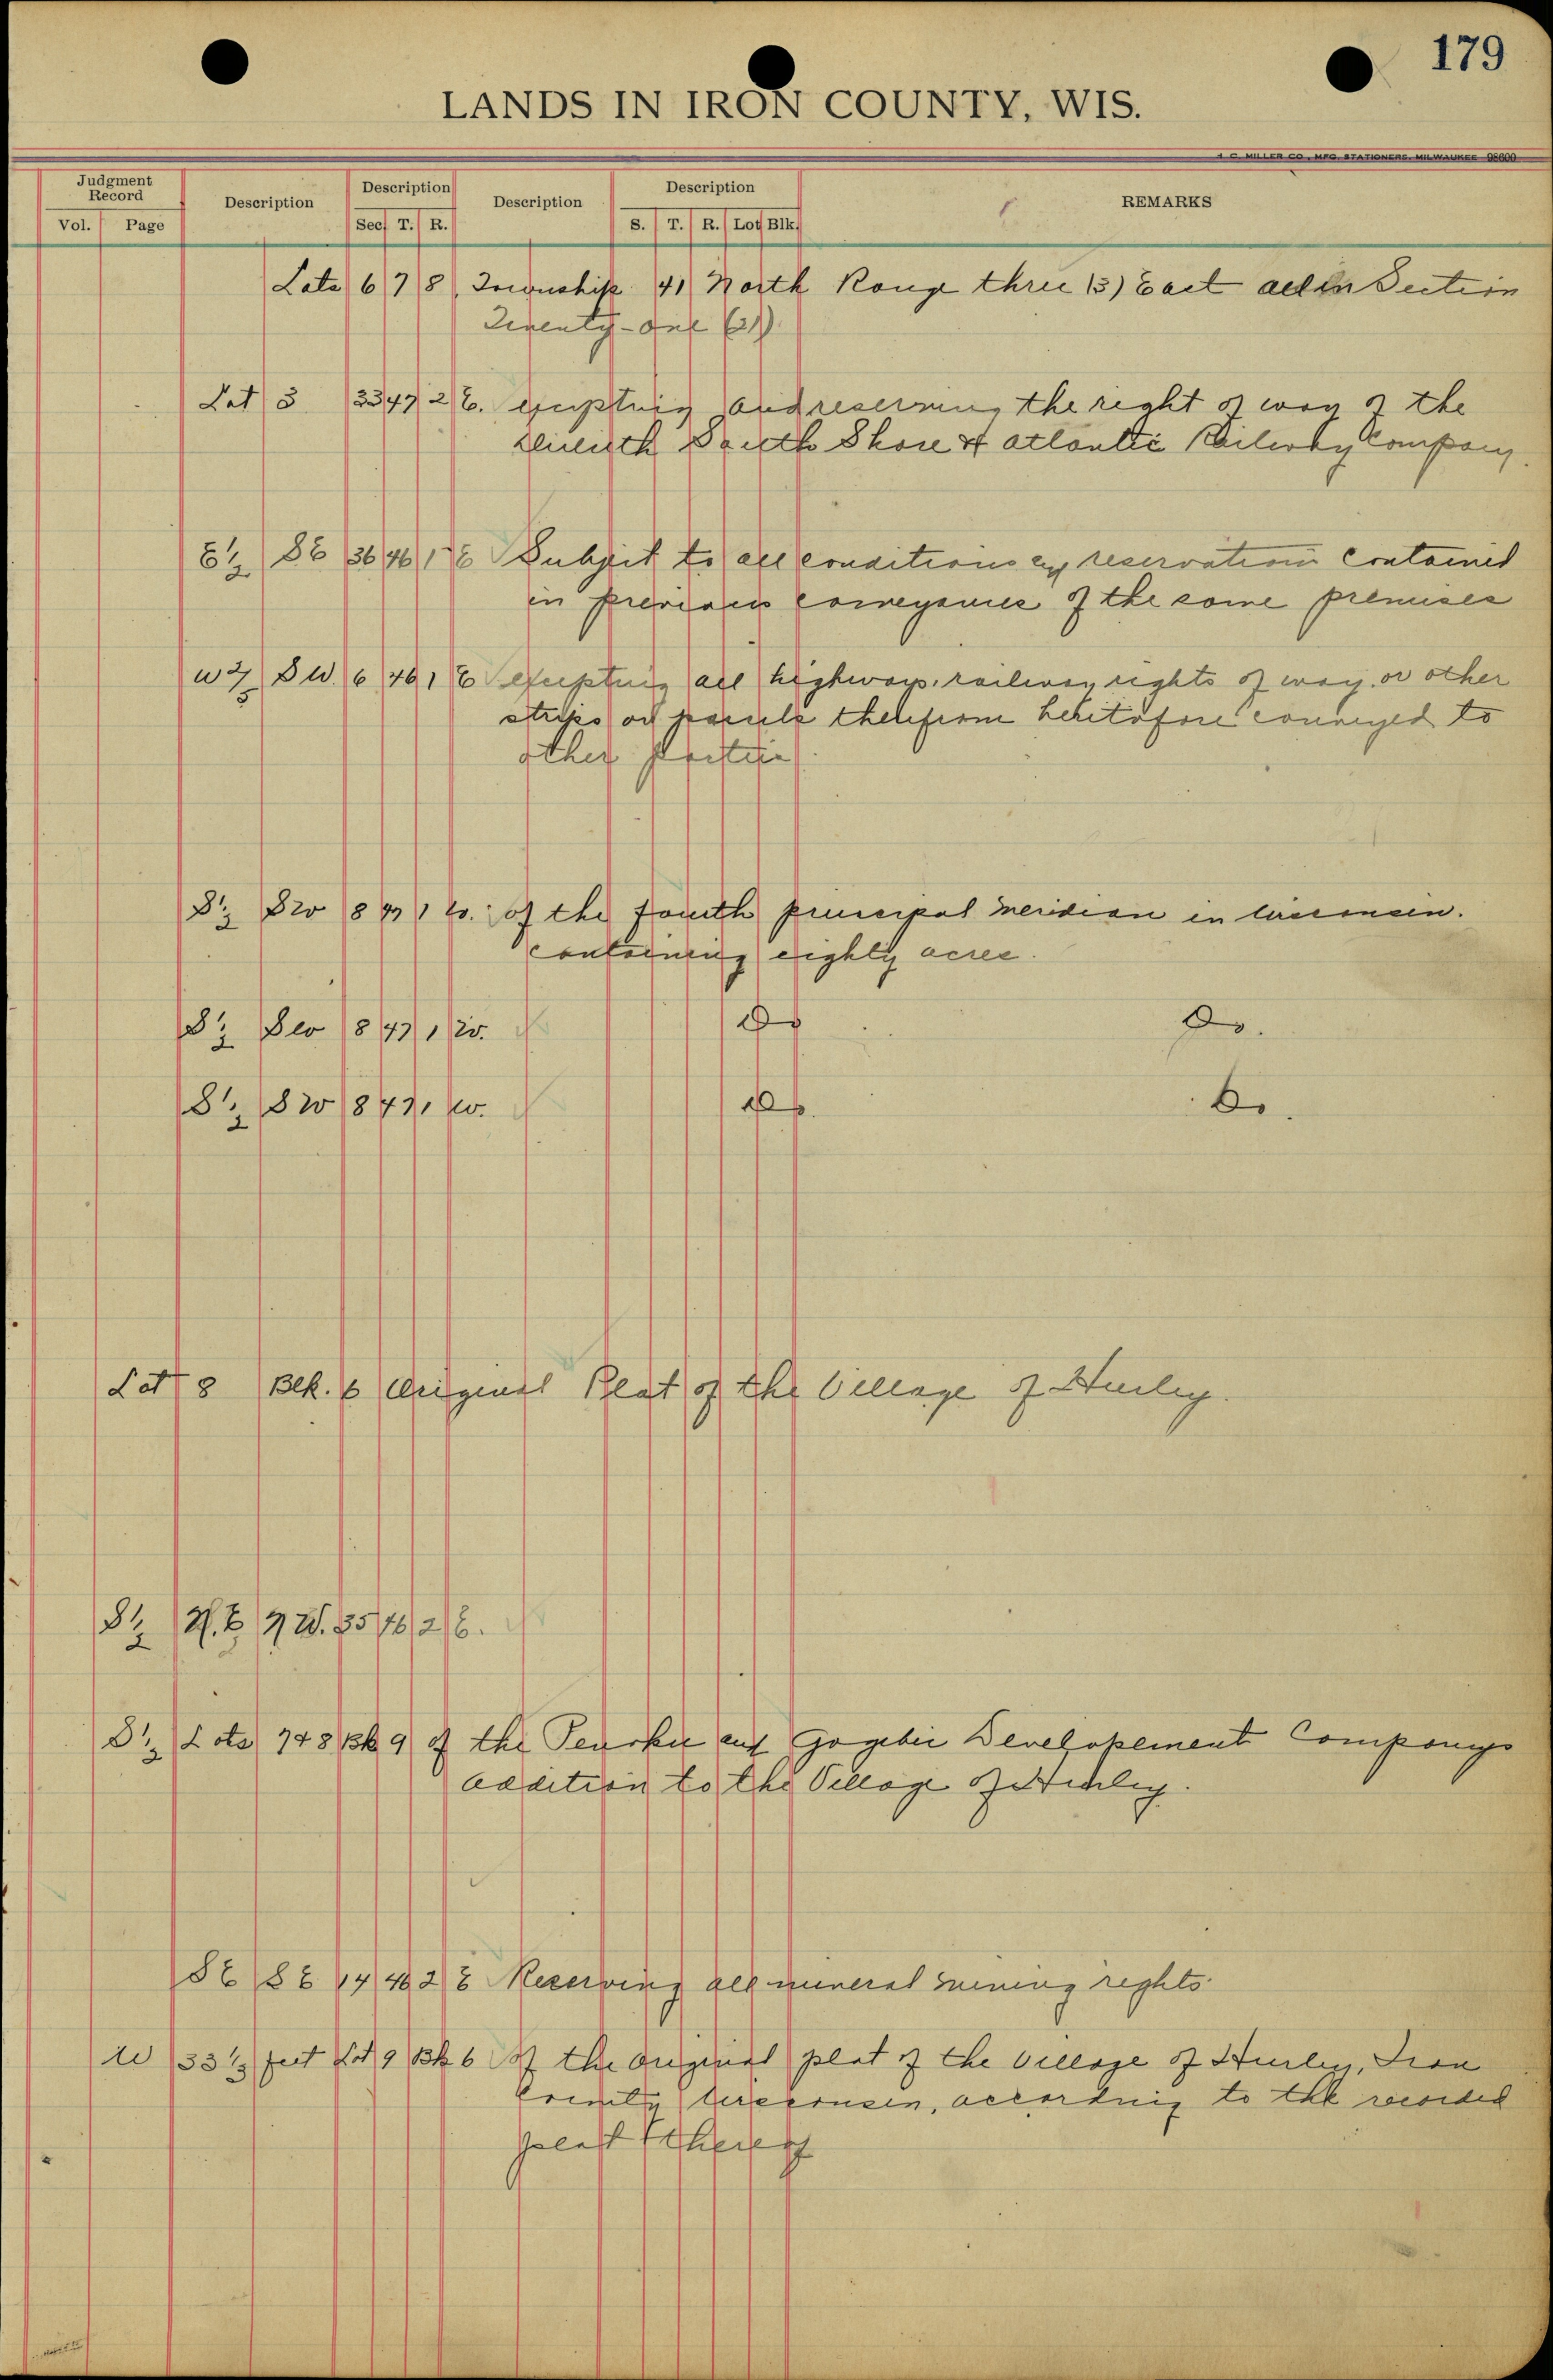 179
LANDS IN IRON COUNTY, WIS.
H. C. MILLER CO., MFG. STATIONERS, MILWAUKEE 98600
Judgment Record Description Description Description Description REMARKS
Vol. Page Sec T. R. S. T. R. Lot Blk.
Lots 6 7 8, Township 41 North Range three (3) East all in Section
Twenty-one (21)
Lot 3 33 47 2 E. excepting and reserving the right of way of the
Duluth South Shore & Atlantic Railway Company.
E½ SE 36 46 1 E Subject to all conditions and reservations contained
in previous conveyances of the same premises
W⅔ SW. 6 46 1 E excepting all highways, railway rights of way, or other
strips or parcels therefrom heretofore conveyed to
other parties
S½ SW 8 47 1 W. of the fourth principal meridian in Wisconsin.
containing eighty acres.
S½ SW 8 47 1 W. Do Do.
S½ SW 8 47 1 W. Do. Do.
Lot 8 Blk. 6 Original Plat of the Village of Hurley.
S½ N.E N W. 35 46 2 E.
S½ Lots 7 & 8 Bk 9 of the Penokee and Gogebic Developement Companys
addition to the Village of Hurley.
SE SE 14 46 2 E Reserving all mineral mining rights
W 33⅓ feet Lot 9 Bk 6 of the original plat of the village of Hurley, Iron
County Wisconsin, according to the recorded
plat thereof